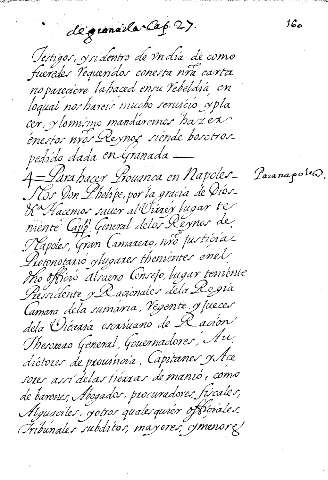 de granada. Cap. 27.
160
Testigos, y si dentro de Un dia de como
fueredes requeridos con esta nra carta
no pareciere la haced en su rebeldia en
lo qual nos hareis mucho seruicio y pla
cer, y lo mismo mandaremos hazer
en estos nros Reynos siendo de bosotros
pedido dada en Granada
4= Para hacer Prouança en Napoles
Para napoles.
Nos Don Phelipe, por la gracia de Dios
&a Hacemos sauer al Virrey lugar te
niente Cappn General de los Reynos de
Napoles, Gran Camarero, nro justicia
Protonotario y lugares thenientes en el
dho officio al sacro Consejo, lugar teniente
Presidente y Racionales de la Regia
Camara de la sumaria, Regente, y jueces
de la Vicaria escriuano de Racion
Thesorero General, Gouernadores, Au
dictores de prouincia, Capitanes y Ase
sores assi de las tierras de manio, como
de barones, Abogados, procuradores fiscales,
Alguaciles, y otros quales quier officiales
Tribunales subditos, mayores, y menores